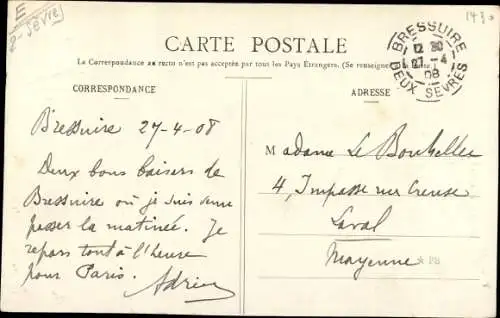 E
2-Sèvre
1430
CARTE POSTALE
La Correspondance au recto n'est pas acceptée par tous les Pays Étrangers. (Se renseigner à la Poste.)
BRESSUIRE
12 30
27 - 4
08
DEUX SEVRES
CORRESPONDANCE
Bressuire 27-4-08
Deux bons baisers de
Bressuire où je suis venu
passer la matinée. Je
repars tout à l'heure
pour Paris.
Adrien
ADRESSE
Madame Le Bouteiller
4, Impasse rue Creuse
Laval
Mayenne